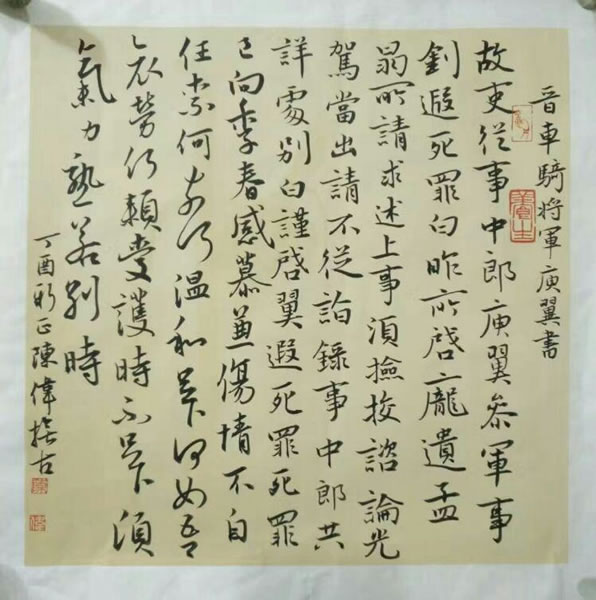 晋車騎将軍庾翼書
故吏從事中郎庾翼参軍事
劉遐死罪白昨所啓龐遺孟
昌所請求述上事須撿挍諮論光
駕當出請不從詣錄事中郎共
詳處別白謹啓翼遐死罪死罪
已向季春感慕兼傷情不自
任柰何奈何温和足下何如吾
哀勞何賴愛護時不足下須
氣力孰若別時
丁酉新正陳偉古